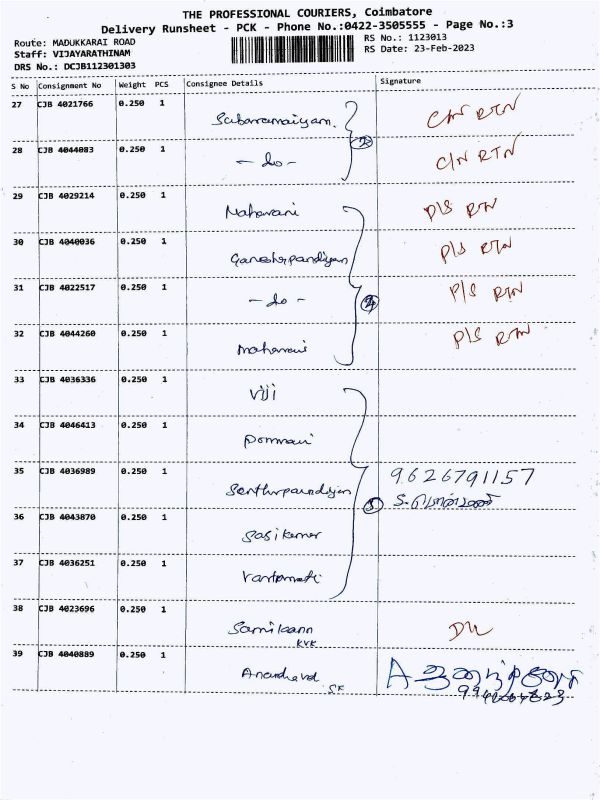 THE PROFESSIONAL COURIERS, Coimbatore
Delivery Runsheet - PCK - Phone No.:0422-3505555 - Page No.:3
Route: MADUKKARAI ROAD
RS No.: 1123013
Staff: VIJAYARATHINAM
RS Date: 23-Feb-2023
DRS No.: DCJB112301303
S No Consignment No Weight PCS Consignee Details Signature
27 CJB 4021766 0.250 1 C/N RTN
28 CJB 4044083 0.250 1 - do - C/N RTN
29 CJB 4029214 0.250 1 Maharani P/S RTN
30 CJB 4040036 0.250 1 Ganeshpandiyan P/S RTN
31 CJB 4022517 0.250 1 - do - P/S RTN
4
32 CJB 4044260 0.250 1 Maharani P/S RTN
33 CJB 4036336 0.250 1 Viji
34 CJB 4046413 0.250 1 Ponmani
35 CJB 4036989 0.250 1 Senthilpandiyan 9626791157
5
36 CJB 4043870 0.250 1 Sasikumar
37 CJB 4036251 0.250 1
38 CJB 4023696 0.250 1 DL
KVK
39 CJB 4040889 0.250 1